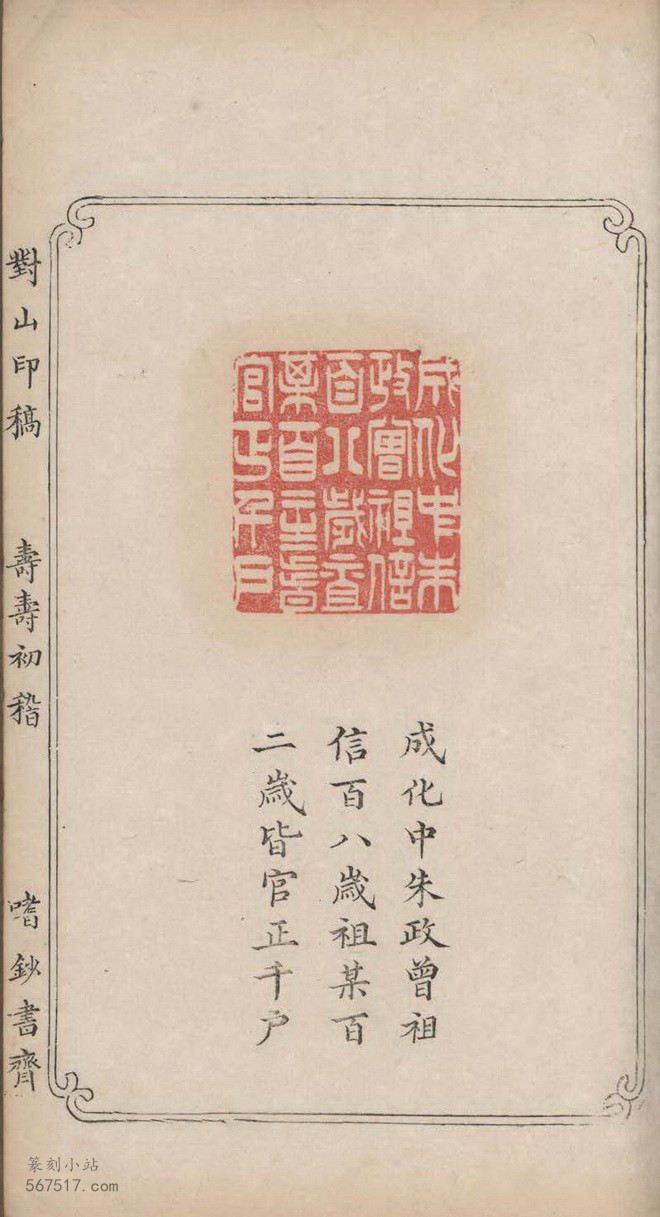 成化中朱
政曾祖信
百八歲祖
某百二歲皆
官正千户
成化中朱政曾祖
信百八歲祖某百
二歲皆官正千户
對山印稿 壽壽初稽 嗜鈔書齊
篆刻小站
567517.com